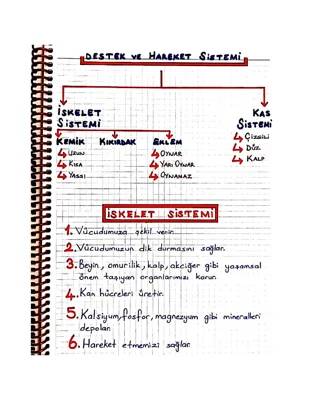 DESTEK VE HAREKET SİSTEMİ
İSKELET SİSTEMİ
KAS SİSTEMİ
KEMİK
KIKIRDAK
EKLEM
Uzun
Kısa
Yassı
Oynar
Yarı Oynar
Oynamaz
Çizgili
Düz
Kalp
İSKELET SİSTEMİ
1. Vücudumuza şekil verir.
2. Vücudumuzun dik durmasını sağlar.
3. Beyin, omurilik, kalp, akciğer gibi yaşamsal
önem taşıyan organlarımızı korur.
4. Kan hücreleri üretir.
5. Kalsiyum, fosfor, magnezyum gibi mineralleri
depolar.
6. Hareket etmemizi sağlar.